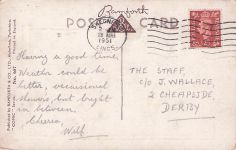 Bamforth
POST CARD
SKEGNESS
1951
LINCS
Having a good time,
Weather could be
better, occasional
showers, but bright
in between.
Cheers,
Walt.
THE STAFF,
C/O J. WALLACE,
2 CHEAPSIDE,
DERBY
Published by BAMFORTH & CO., LTD., Holmfirth, Yorkshire.
"COMIC" Series No.